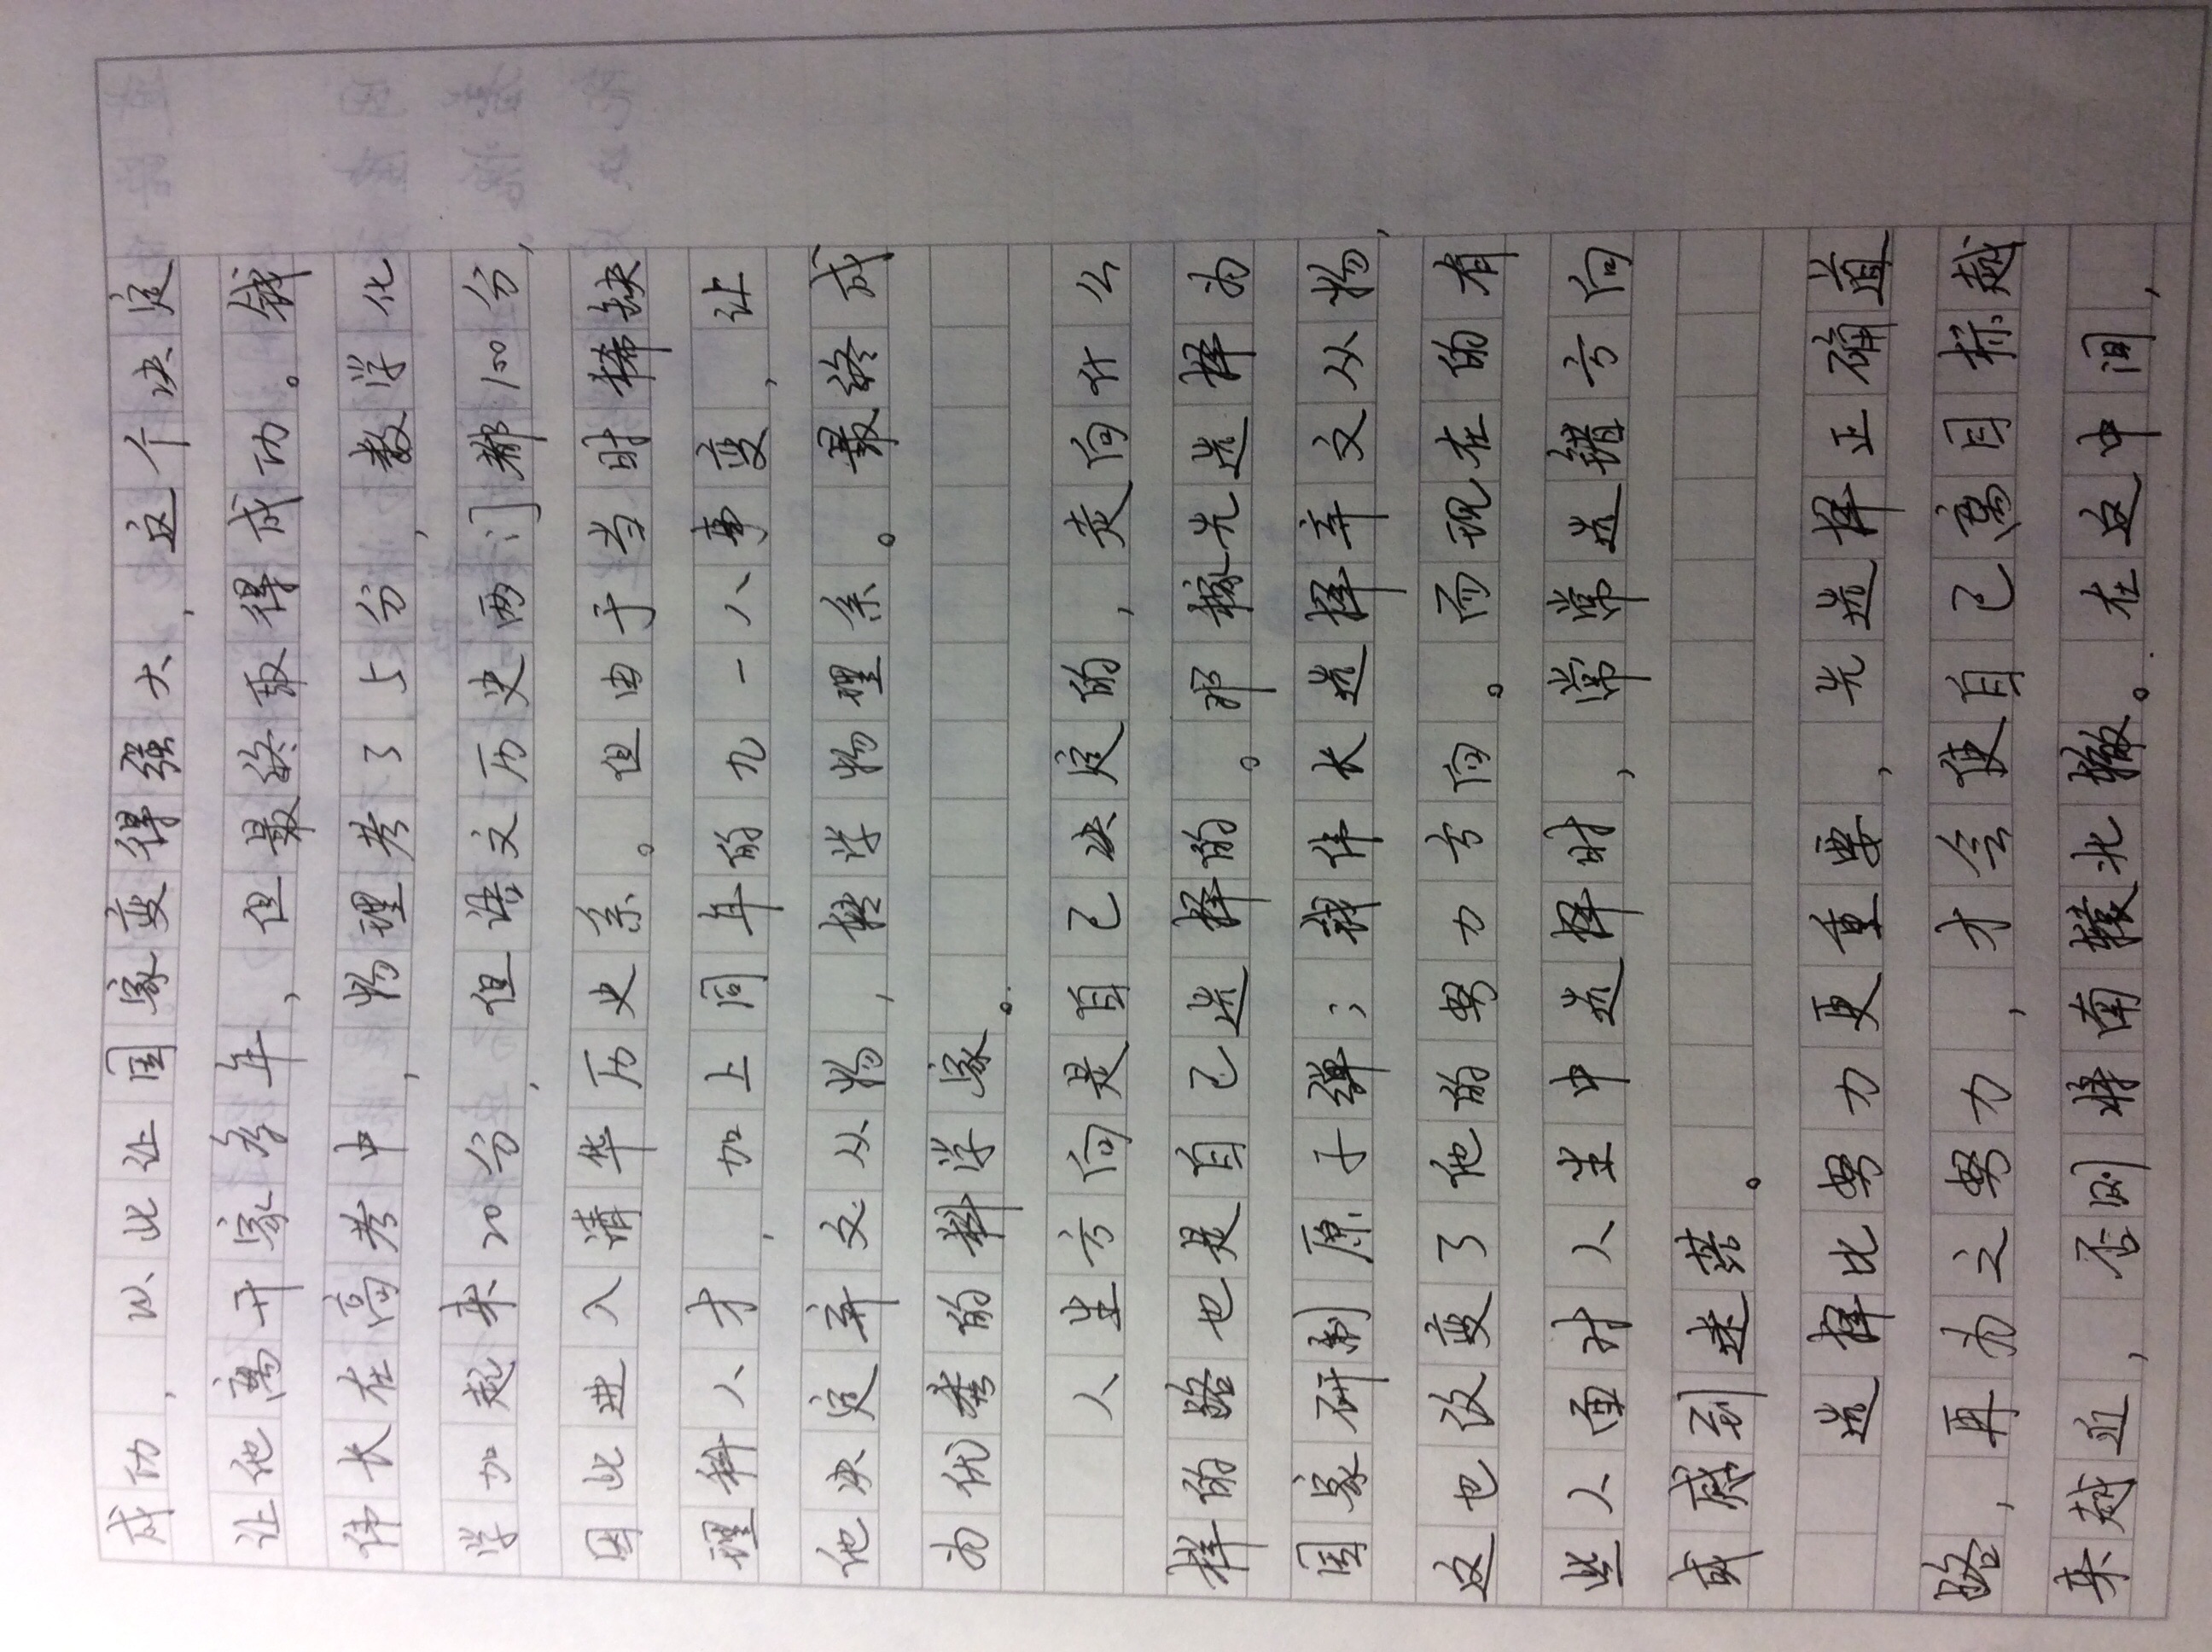 成功，以此让国家变得强大，这个决定
让他离开家多年，但最终取得成功。钱
伟长在高考中，物理考了5分，数学化
学加起来20分，但语文历史两门都100分，
因此进入清华历史系。但由于当时稀缺
理科人才，加上同年的九一八事变，让
他决定弃文从物，转学物理系。最终成
为优秀的科学家。
人生方向是自己决定的，走向什么
样的路也是自己选择的。邓稼先选择为
国家研制原子弹；钱伟长选择弃文从物，
这也改变了他的努力方向。而现在的有
些人面对人生中选择时，常常选错方向
或感到迷茫。
选择比努力更重要，先选择正确道
路，再为之努力，才会使自己离目标越
来越近，否则将南辕北辙。在这中间，